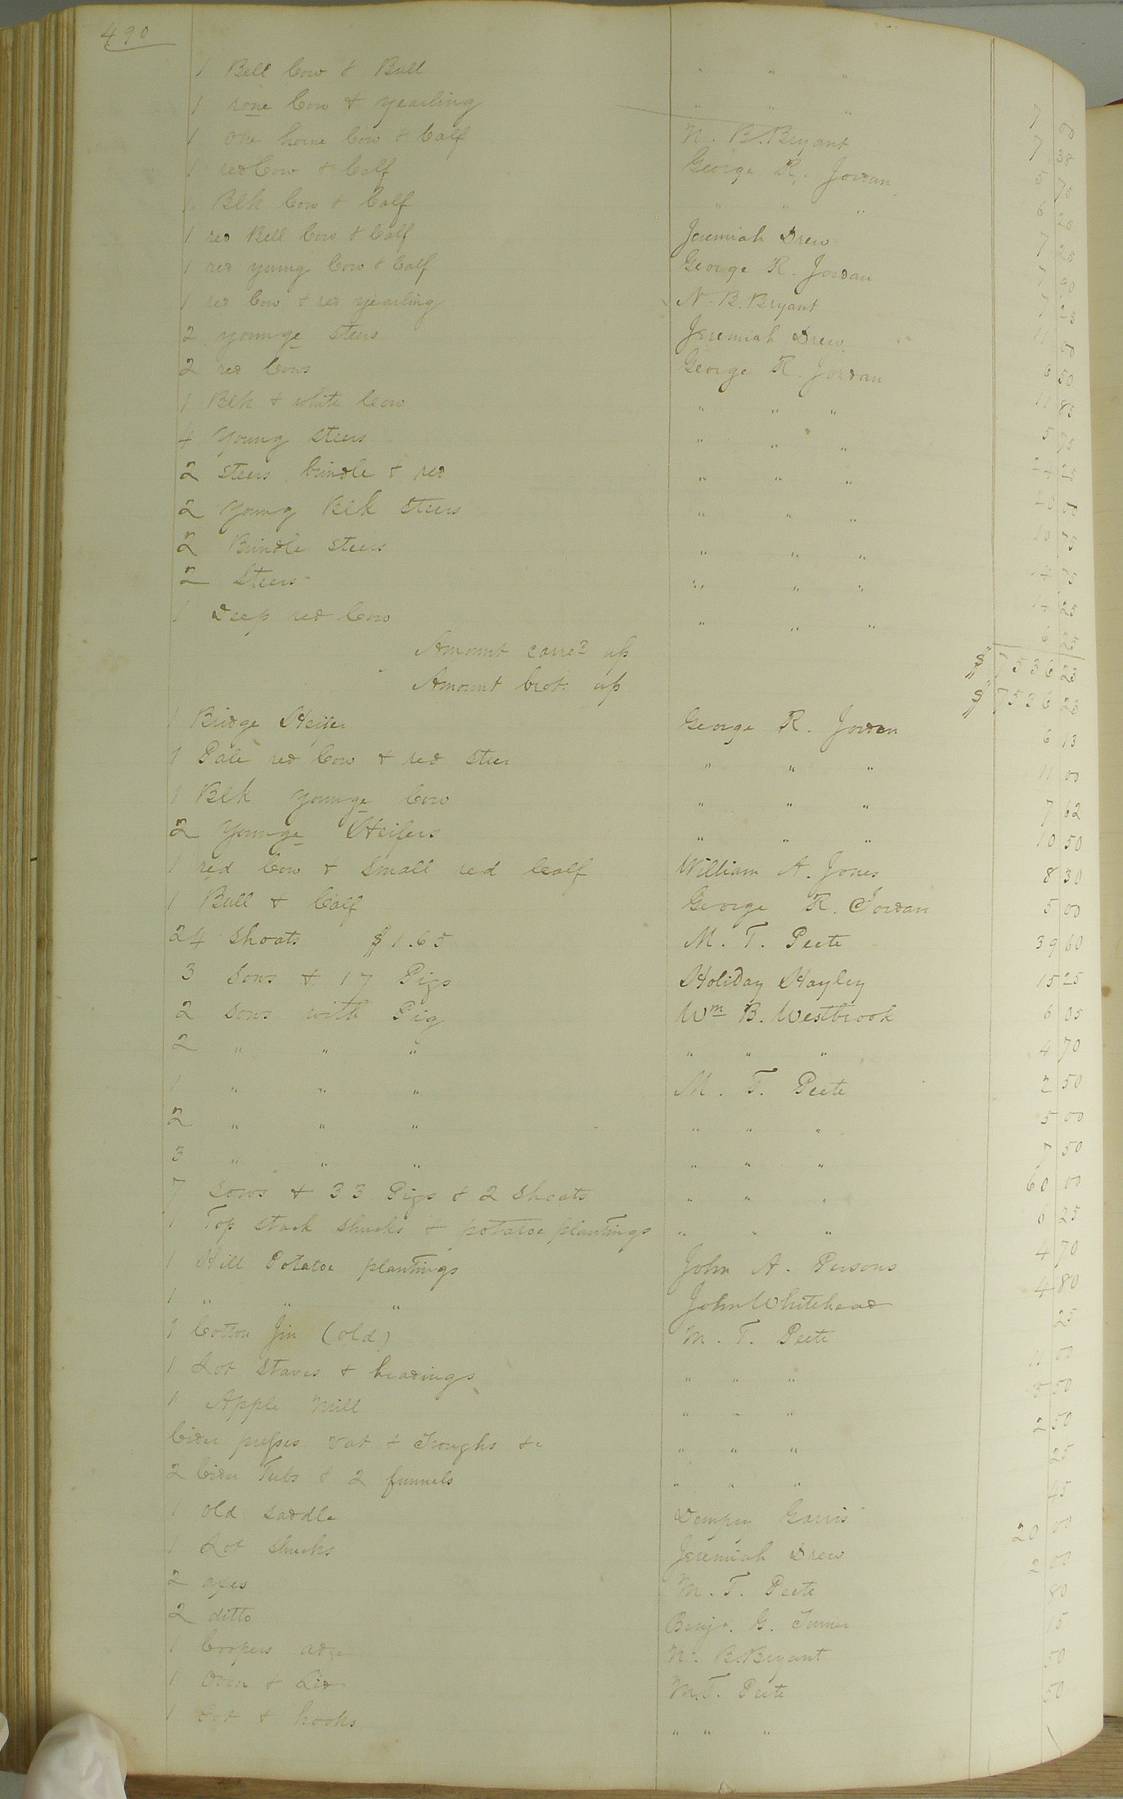 490
1 Bell Cow & Bull " " "
1 rone Cow & yearling " " " 7 00
1 one horne Cow & Calf N. B. Bryant 7 38
1 red Cow & Calf George R. Jordan 5 70
1 Blk Cow & Calf " " " 6
1 red Bell Cow & Calf Jeremiah Drew 7
1 red young Cow & Calf George R. Jordan
1 red Cow & red yearling N. B. Bryant
2 younge steers Jeremiah Drew 50
2 red Cows George R. Jordan 50
1 Blk & white Cow " " "
4 Young steers " " " 5 75
2 steers brindle & red " " " 25
2 Young Blk steers " " "
2 Brindle steers " " " 75
2 Steers " " "
1 Deep red Cow " " " 6 25
Amount carred up $7536 23
Amount brot. up $7536 23
1 Bridge Heifer George R. Jordan 6 13
1 Pale red Cow & red steer " " " 11 00
1 Blk younge Cow " " " 7 62
2 Younge Heifers " " " 10 50
1 red Cow & small red Calf William A. Jones 8 30
1 Bull & Calf George R. Jordan 5 00
24 Shoats $1.65 M. T. Peete 39 60
3 Sows & 17 Pigs Holiday Hayley 15 25
2 Sows with Pig Wm B. Westbrook 6 05
2 " " " " " " 4 70
1 " " " M. T. Peete 2 50
2 " " " " " " 5 00
3 " " " " " " 7 50
7 Sows & 33 Pigs & 2 Shoats " " " 60 00
1 Top stack shucks & potatoe plantings " " " 6 25
1 Hill Potatoe plantings John A. Persons 4 70
1 " " " John Whitehead 4 80
1 Cotton Jin (old) M. T. Peete 25
1 Lot Staves & headings " " " 11 00
1 Apple Mill " " " 5 50
Cider presses vat & Troughs &c " " " 2 50
2 Cider Tubs & 2 funnels " " " 25
1 old saddle Dempsy Garris 45
1 Lot Shucks Jeremiah Drew 20 00
2 axes M. T. Peete 2 00
2 ditto Benj. G. Turner 80
1 Coopers adze N. B. Bryant 15
1 Oven & Lid M. T. Peete 50
1 Pot & hooks " " " 50